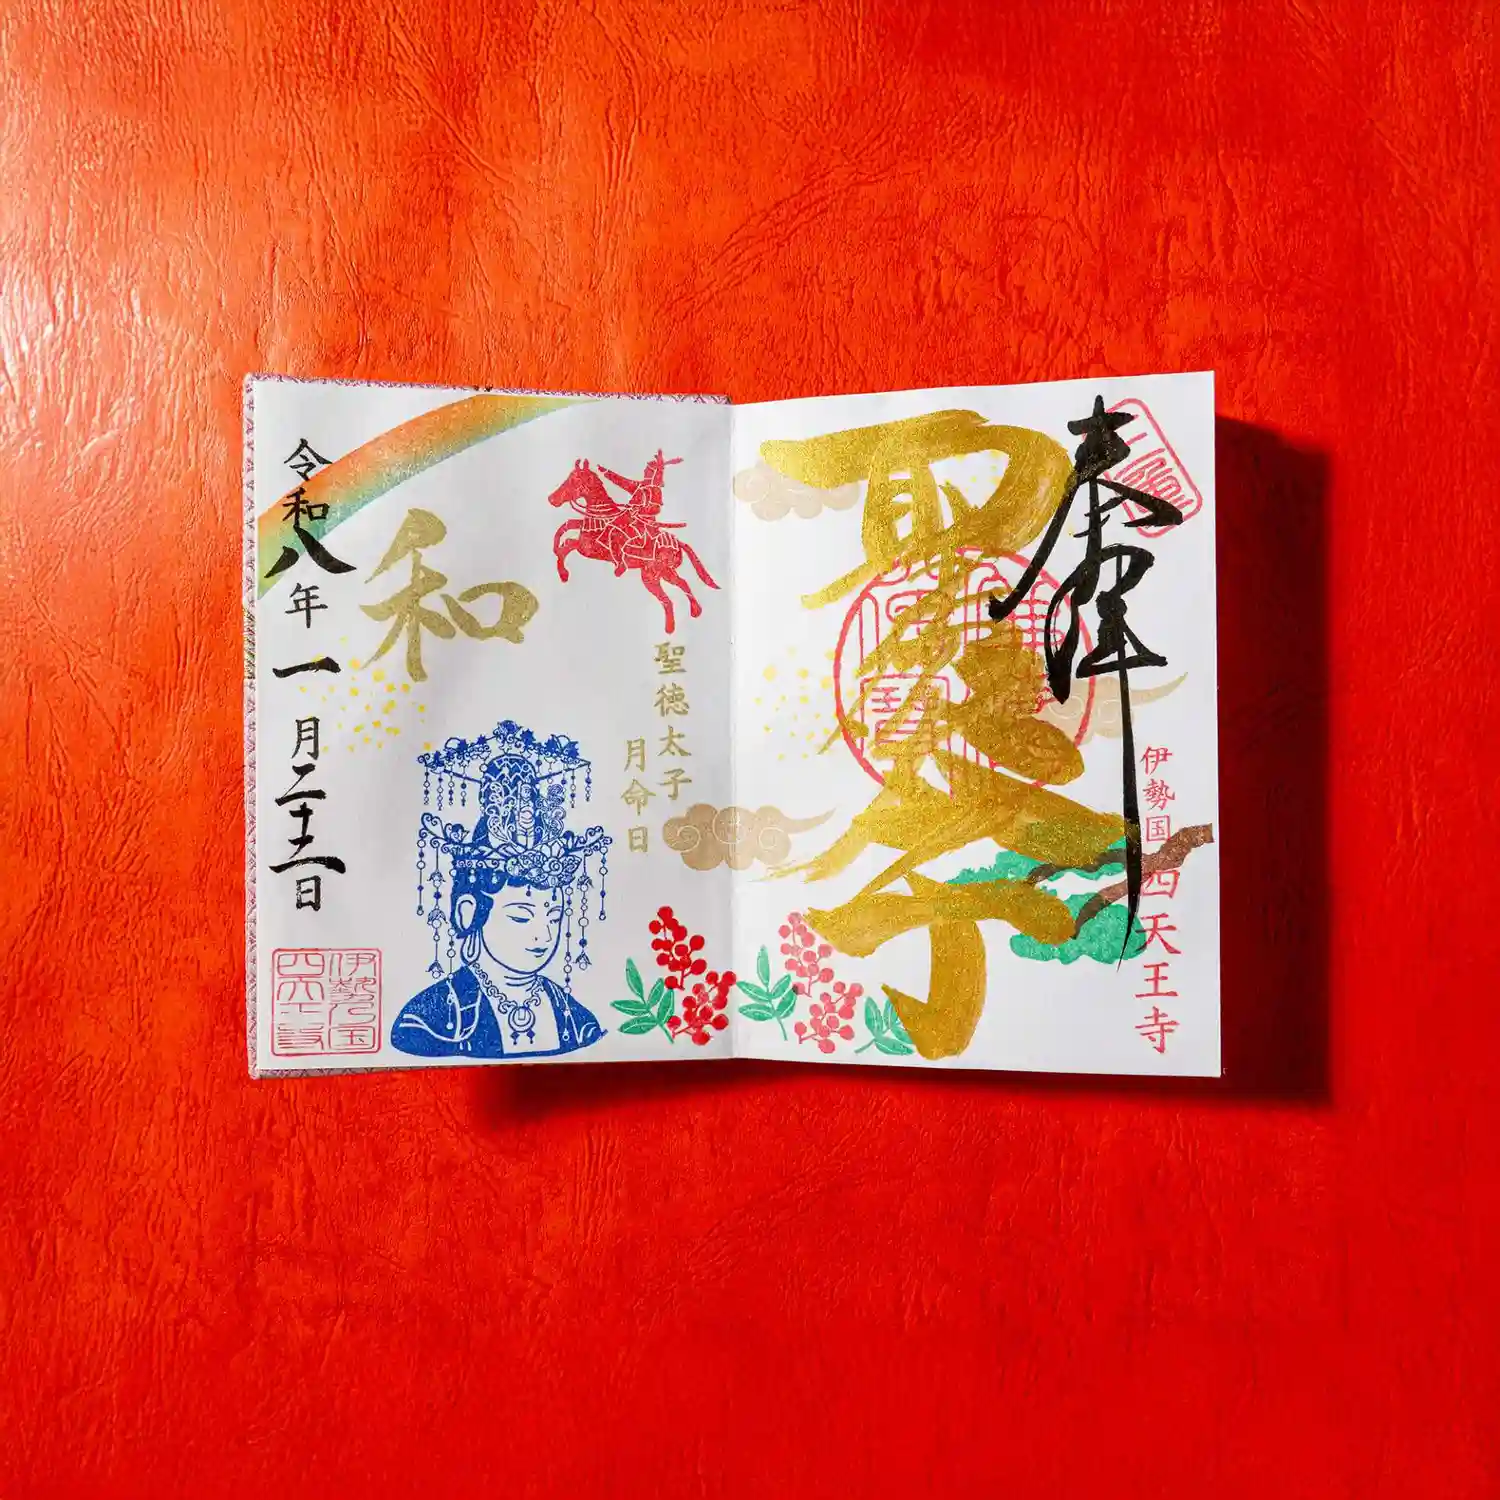 奉拝
伊勢国 四天王寺
聖徳太子
聖徳太子
月命日
和
令和八年一月二十二日
伊勢国
四天王寺